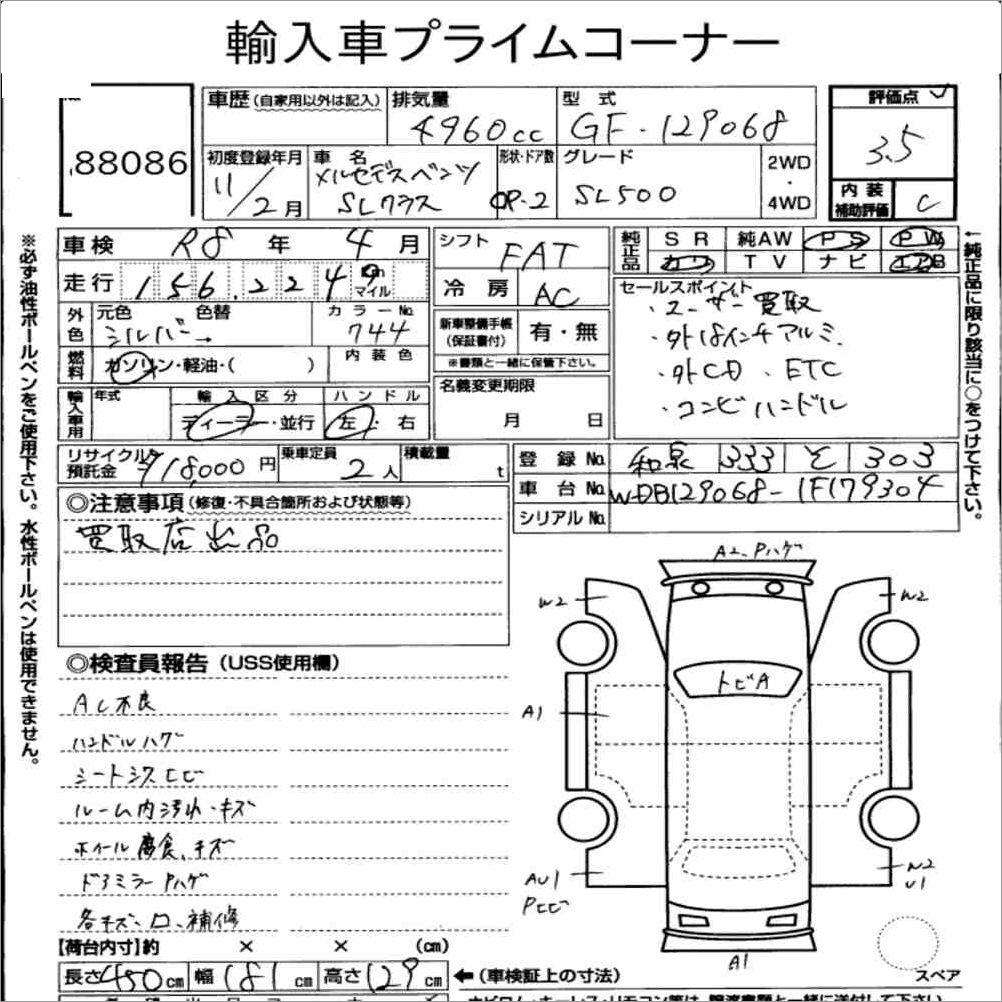 輸入車プライムコーナー
88086
車歴 (自家用以外は記入)
排気量
4960cc
型式
GF-129068
評価点
3.5
内装補助評価
C
初度登録年月
11/2月
車名
メルセデスベンツ
SLクラス
形状・ドア数
OP-2
グレード
SL500
2WD
・
4WD
※必ず油性ボールペンをご使用下さい。水性ボールペンは使用できません。
車検 R8年 4月
走行 156,229 Km マイル
外色
元色 色替
シルバー→
カラーNo.
744
燃料
ガソリン・軽油・( )
内装色
輸入車用
年式
輸入区分
ディーラー・並行
ハンドル
左・右
シフト FAT
冷房 AC
新車整備手帳
(保証書付)
有・無
※書類と一緒に保管下さい。
名義変更期限
月 日
純正品
SR 純AW PS PW
カワ TV ナビ エアB
←純正品に限り該当に○をつけて下さい。
セールスポイント
・ユーザー買取
・外18インチアルミ
・外CD、ETC
・コンビハンドル
リサイクル預託金 ¥18,000円
乗車定員 2人
積載量 t
登録No. 和泉 333 そ 303
車台No. WDB129068-1F179304
シリアルNo.
◎注意事項 (修復・不具合箇所および状態等)
買取店出品
◎検査員報告 (USS使用欄)
AC不良
ハンドルハゲ
シートシワヒビ
ルーム内汚れ・キズ
ホイール腐食、キズ
ドアミラーPハゲ
各キズ、凹、補修
A2、Pハゲ
W2
W2
トビA
A1
AU1
Pヒビ
W2
U1
A1
スペア
【荷台内寸】約 × × (cm)
長さ450cm 幅181cm 高さ129cm
←(車検証上の寸法)